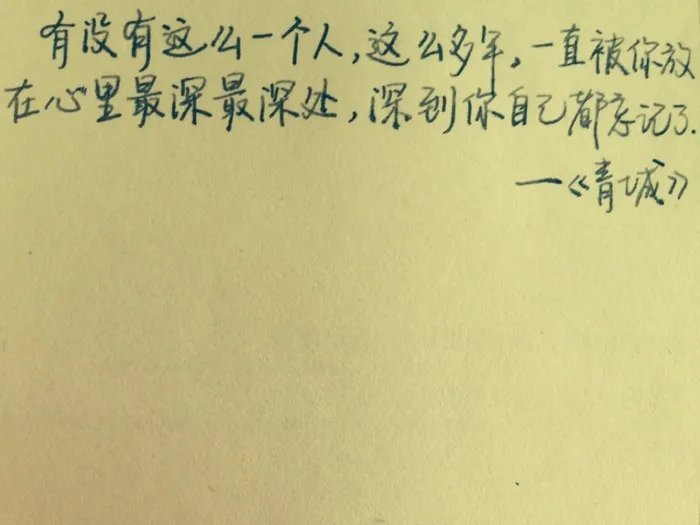 有没有这么一个人,这么多年,一直被你放
在心里最深最深处,深到你自己都忘记了.
—《青城》